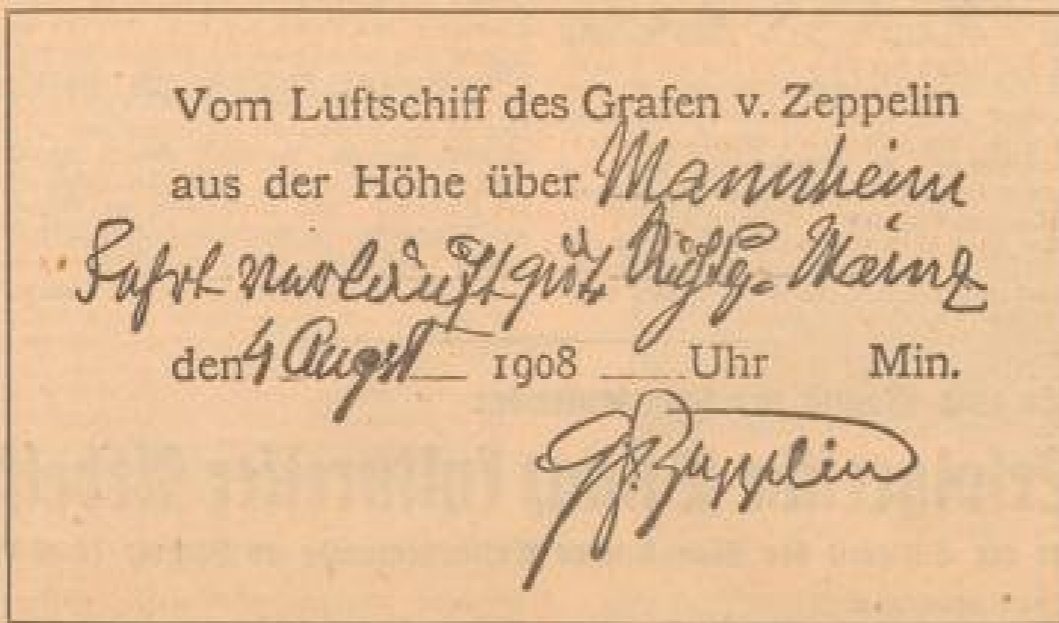 Vom Luftschiff des Grafen v. Zeppelin
aus der Höhe über Mannheim
Fahrt verläuft gut Richtg. Mainz
den 4 Augst 1908 Uhr Min.
Gf. Zeppelin